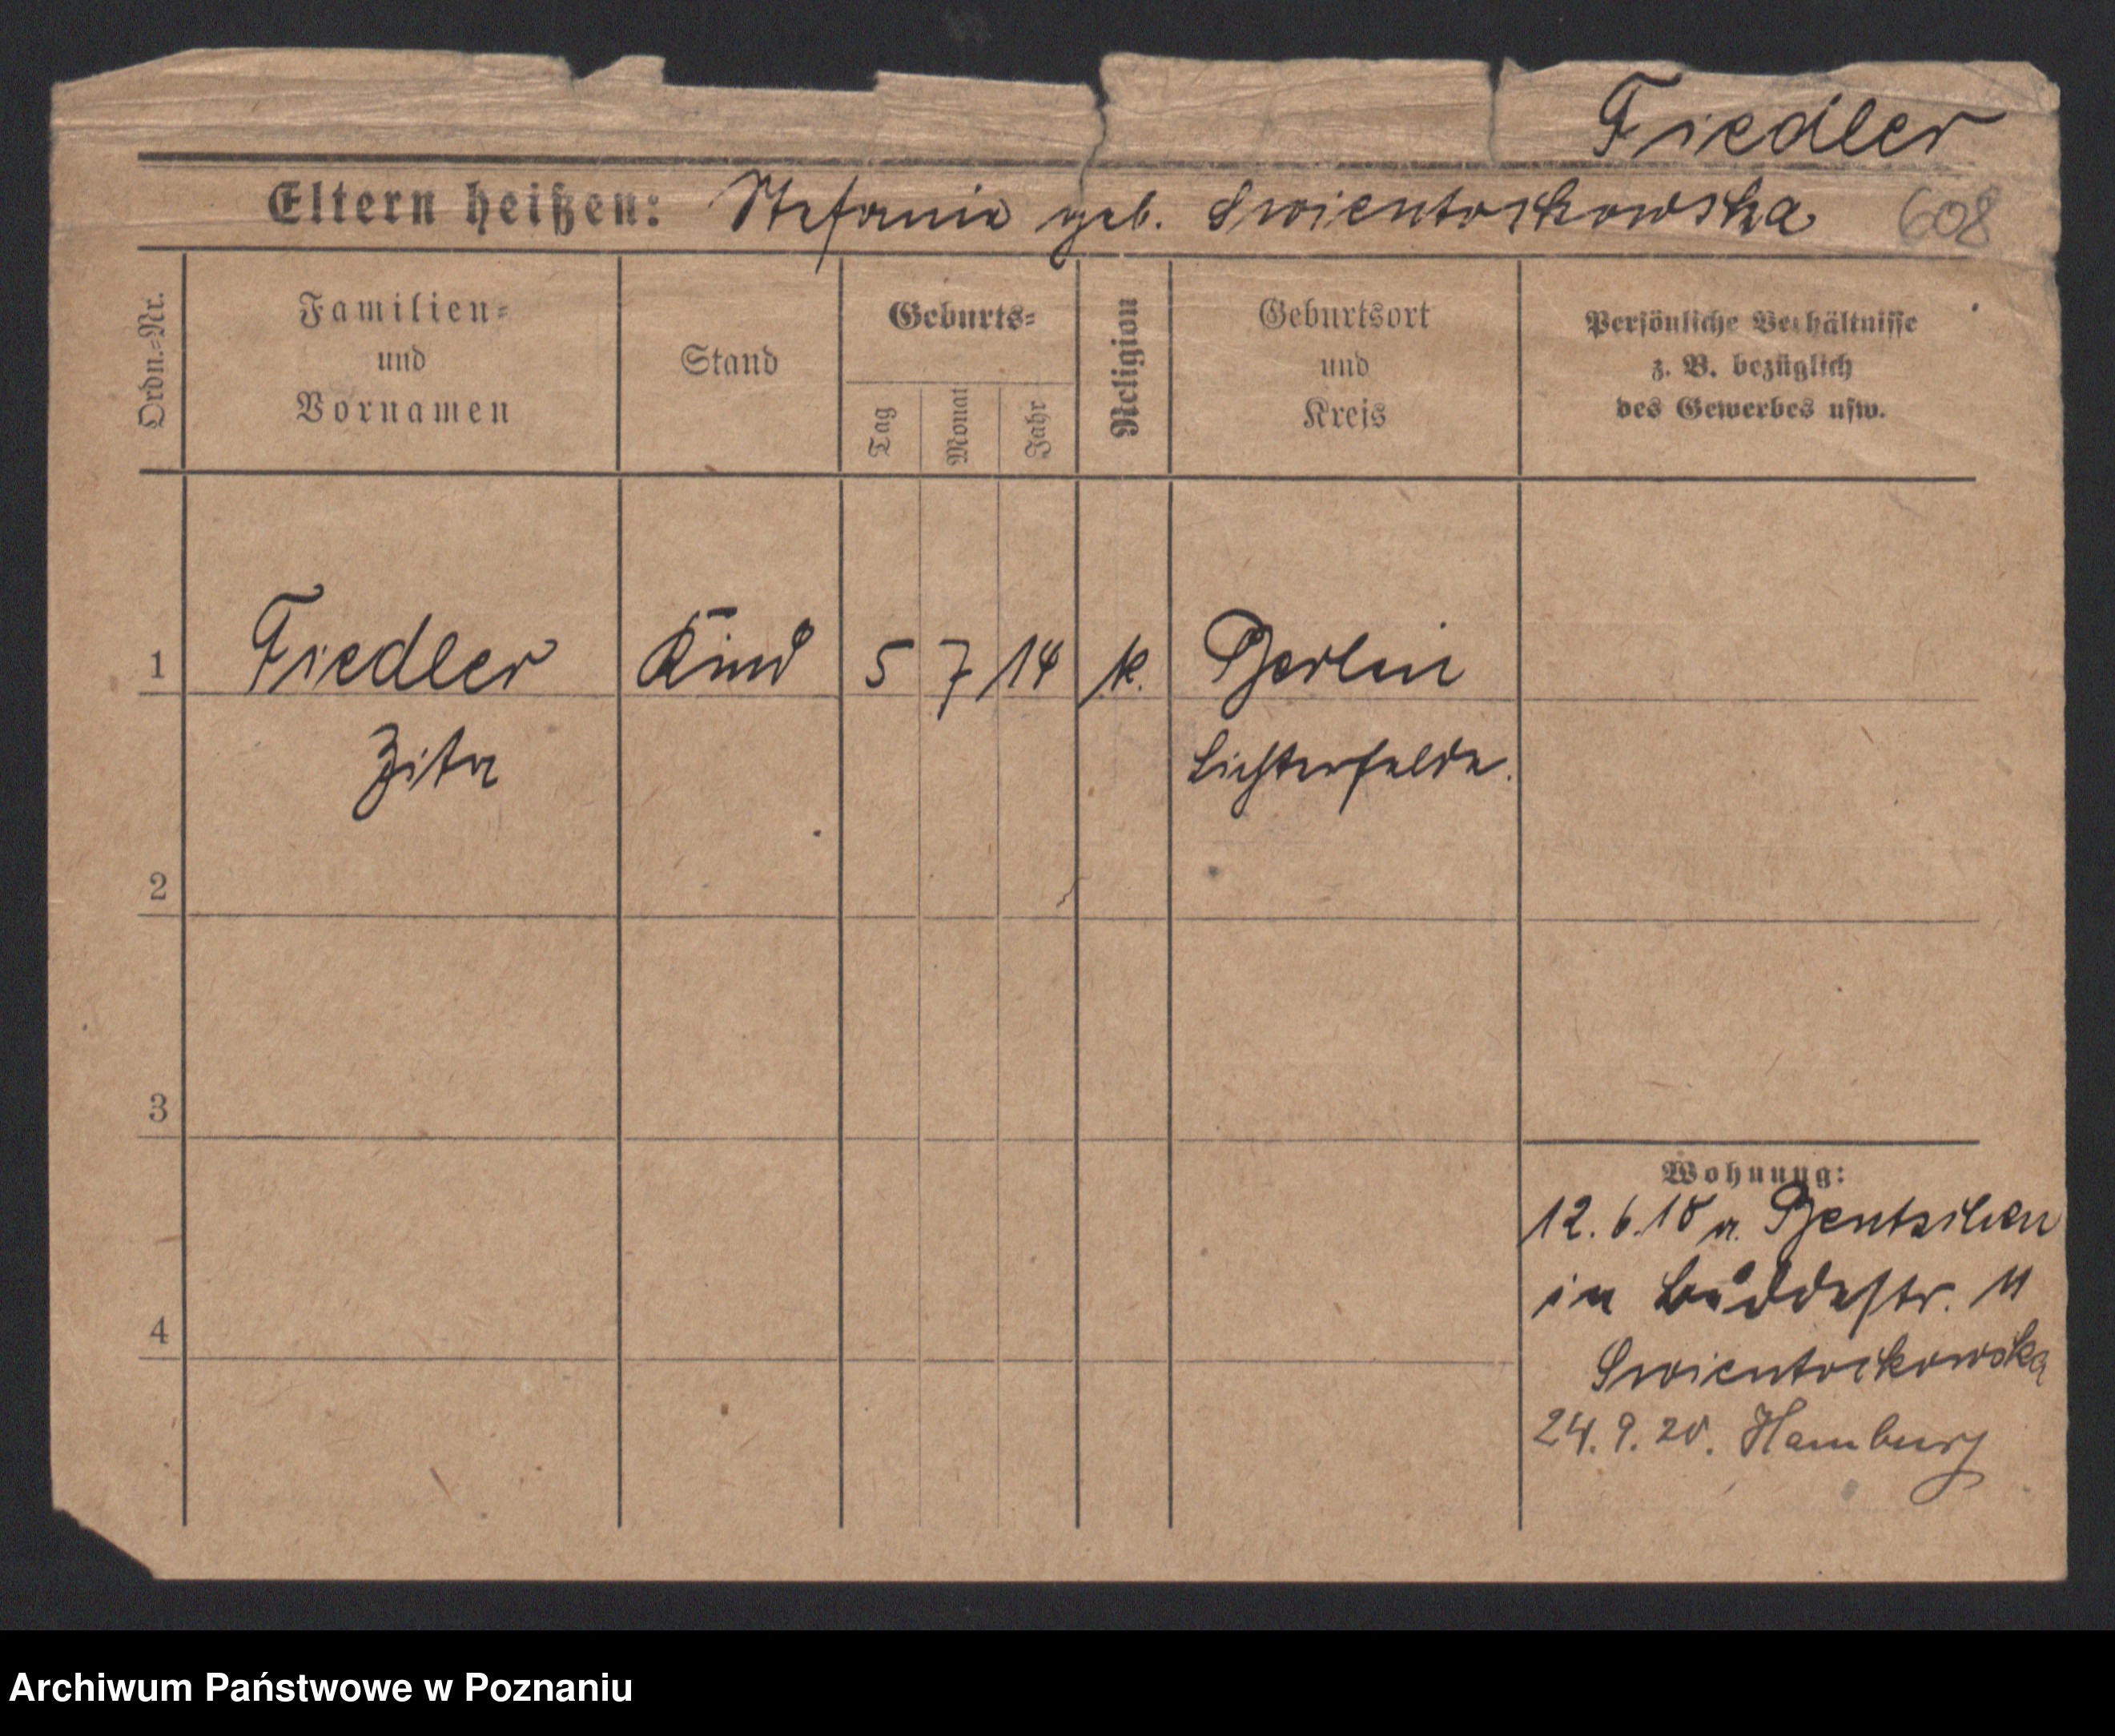 Fiedler
Eltern heißen: Stefanie geb. Swientoskowska 608
Ordn.-Nr.
Familien-
und
Vornamen
Stand
Geburts-
Tag
Monat
Jahr
Religion
Geburtsort
und
Kreis
Persönliche Verhältnisse
z. B. bezüglich
des Gewerbes usw.
1 Fiedler Kind 5 7 14 k. Berlin
Zita Lichterfelde.
2
3
Wohnung:
12.6.18 a. Bentschen
in 11
4
Swientoskowska
24.9.20. Hamburg
Archiwum Państwowe w Poznaniu